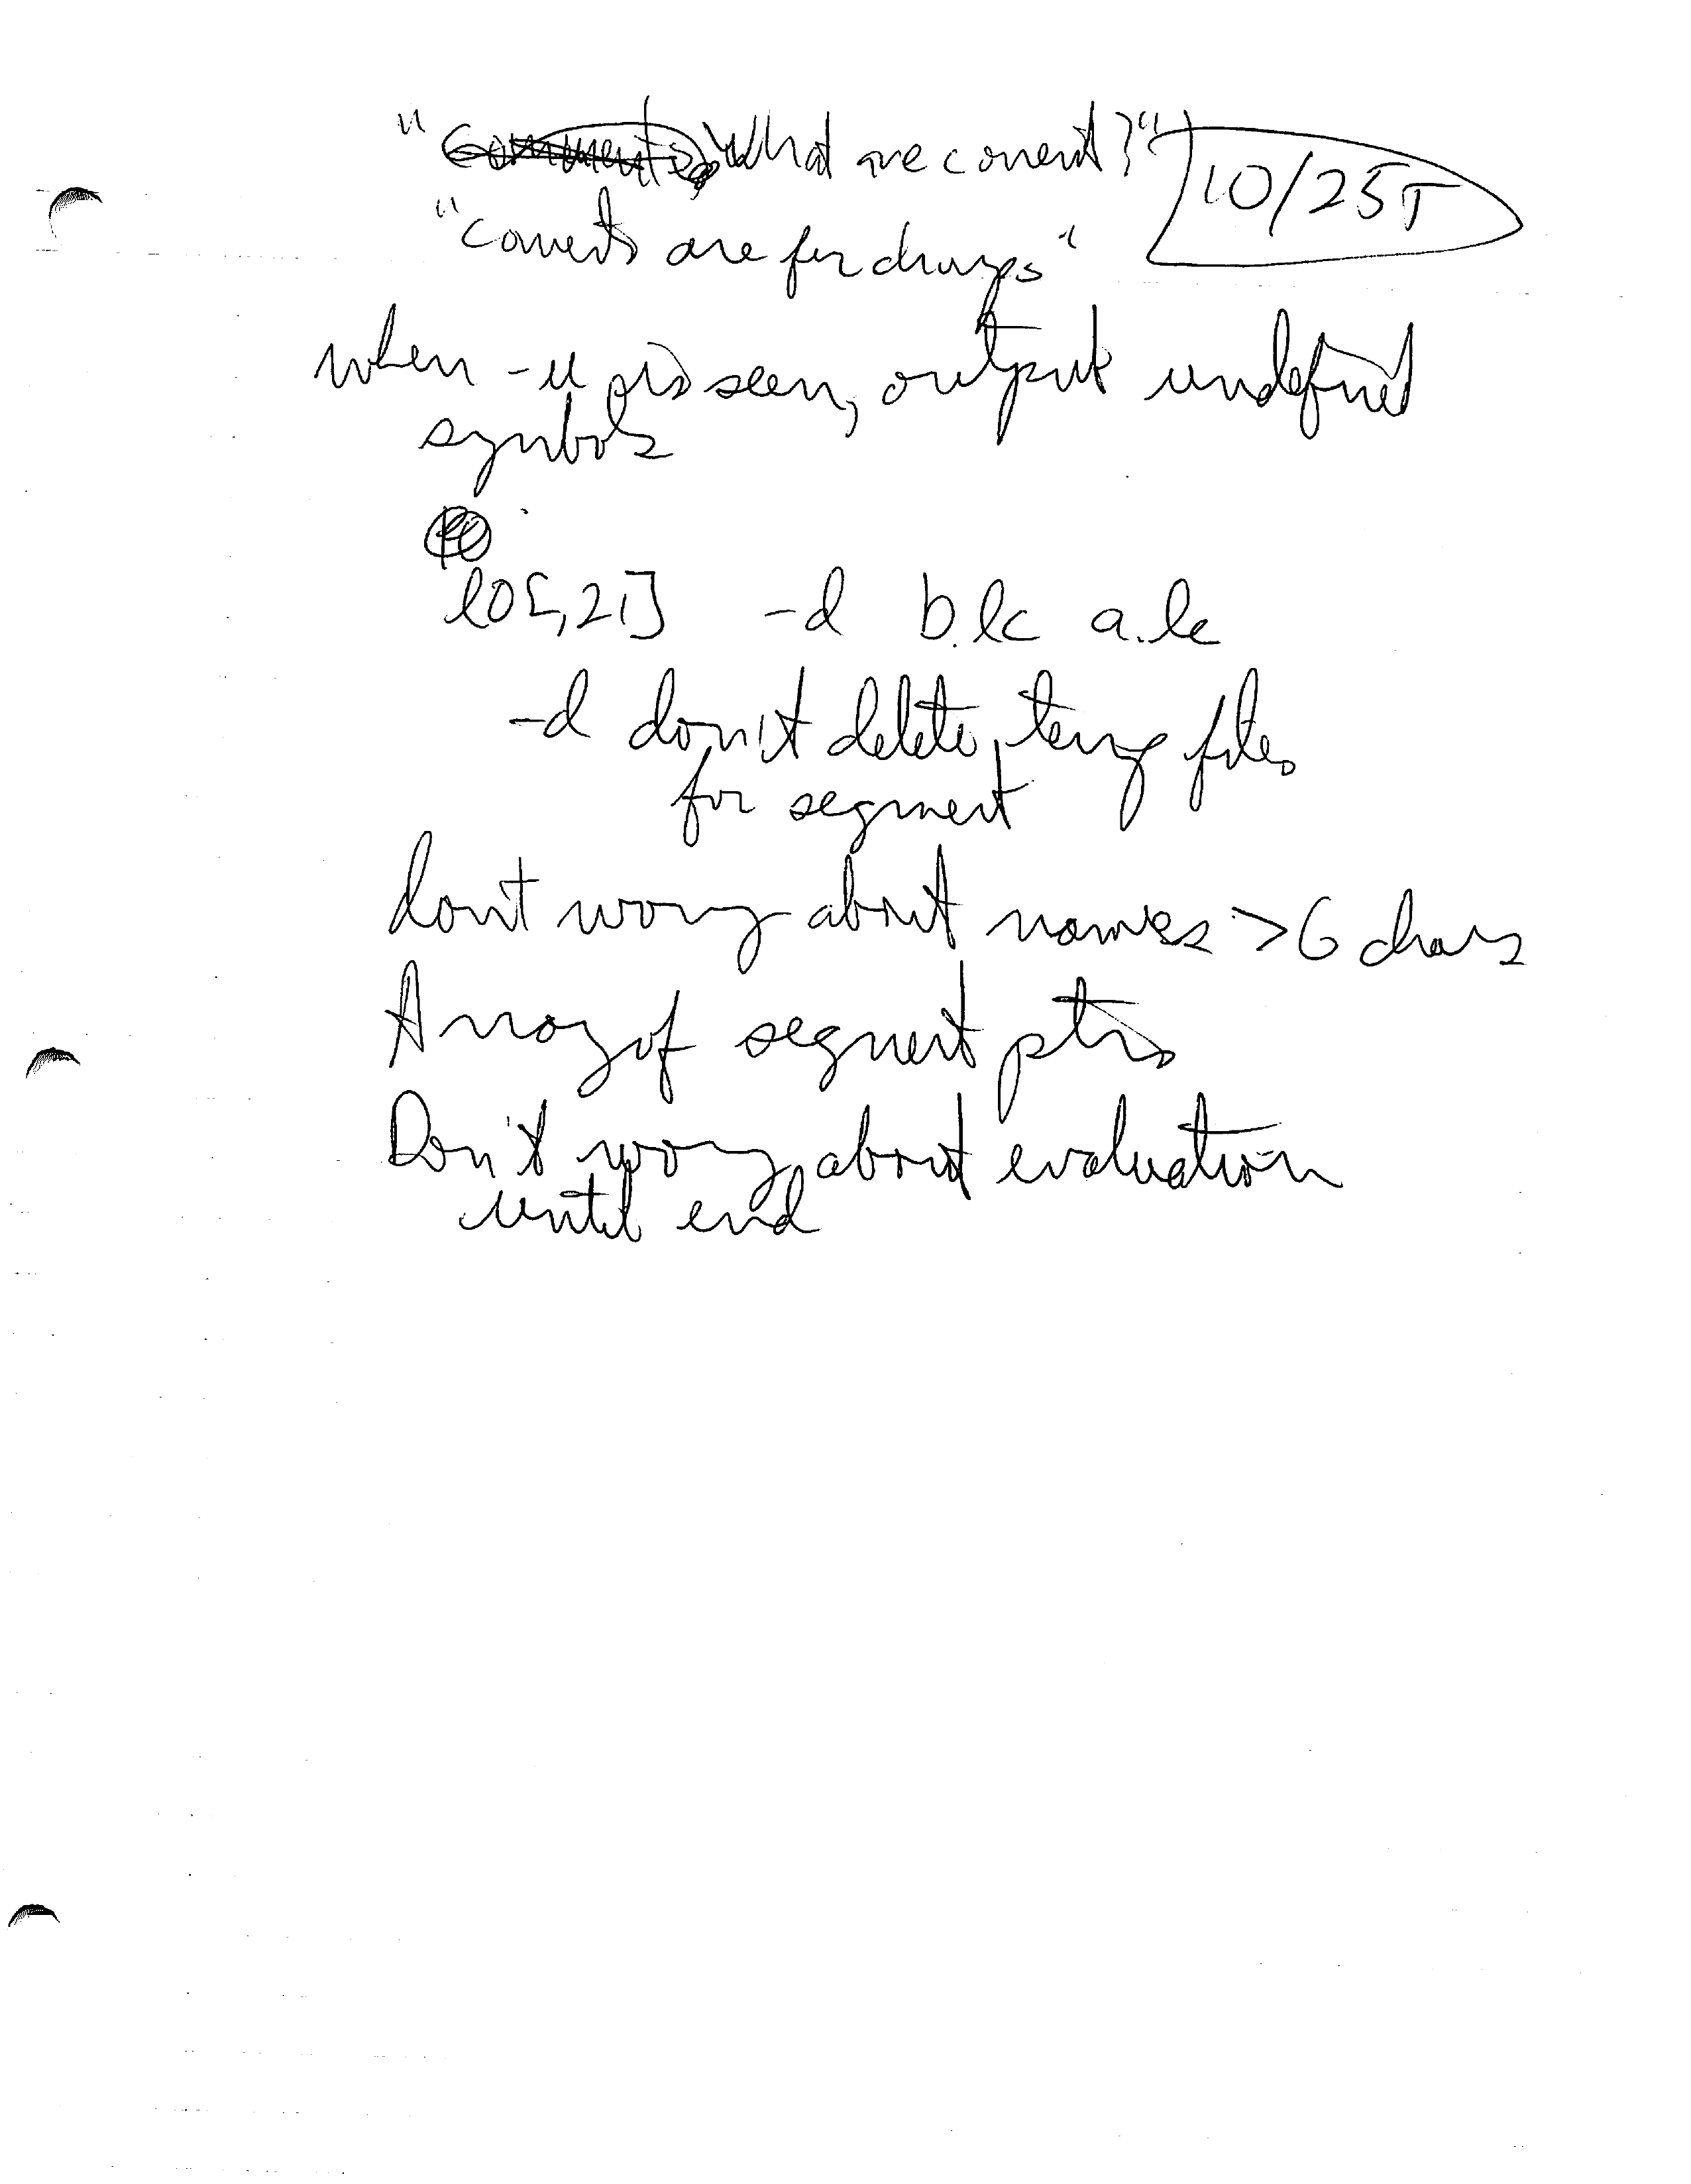 "What are coment?" 10/25 T
"Coments are for chumps"
when -u is seen, output undefined
symbols
lo[,21] -d b.lc a.lc
-d don't delete temp files
for segment
dont worry about names > 6 chars
Array of segment ptrs
Don't worry about evaluation
until end